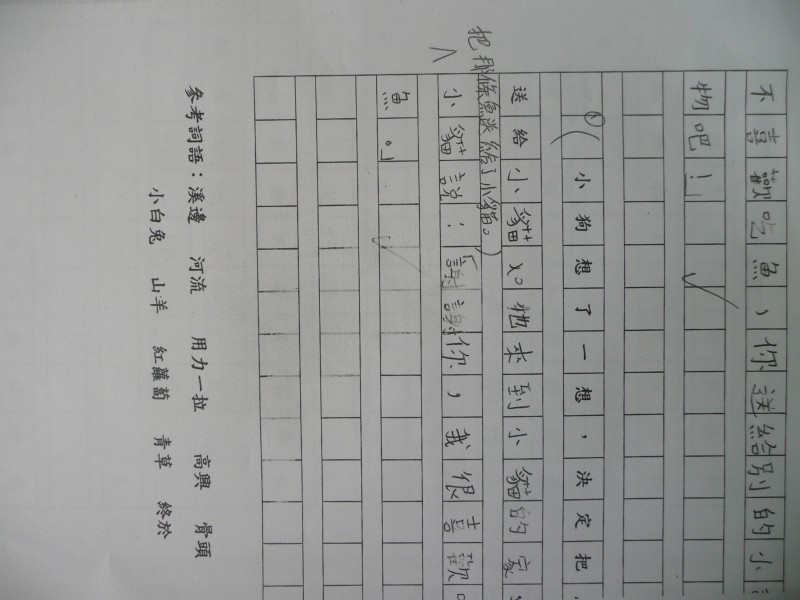 不喜歡吃魚，你送給別的小
物吧！」
(小狗想了一想，決定把
送給小貓。牠來到小貓的家
把那條魚送給了小貓。)
小貓說：「謝謝你，我很喜歡
魚。」
參考詞語：溪邊 河流 用力一拉 高興 骨頭
小白兔 山羊 紅蘿蔔 青草 終於